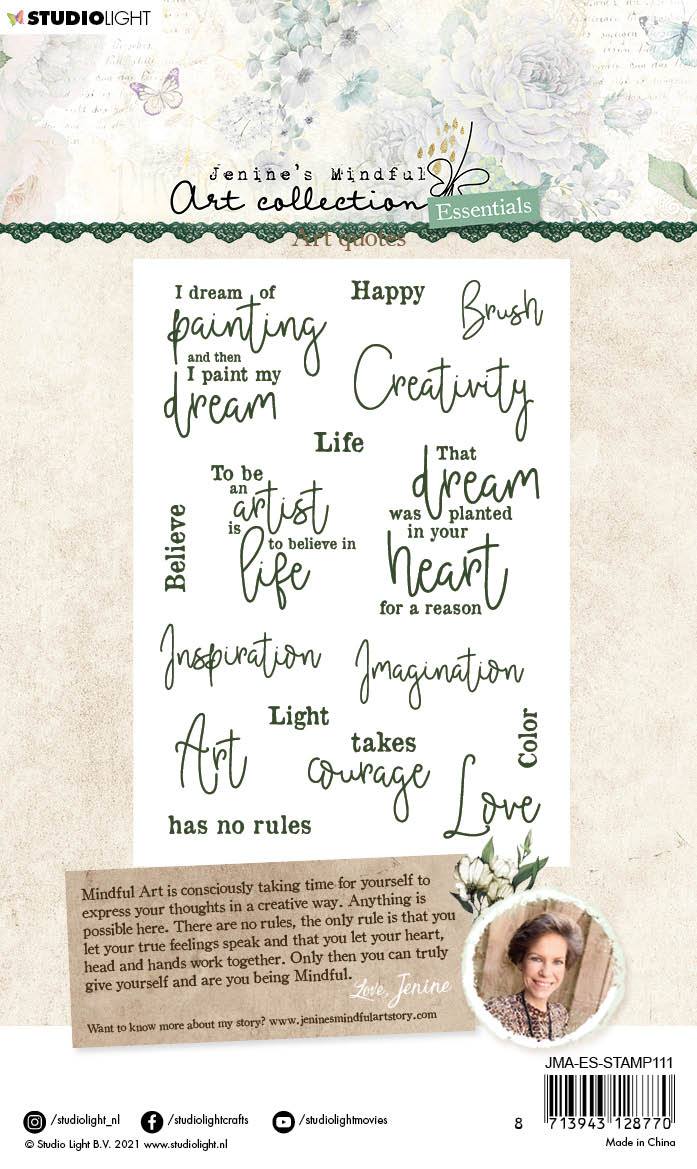 STUDIOLIGHT
Jenine's Mindful
Art collection
Essentials
Art quotes
I dream of
painting
and then
I paint my
dream
Happy
Brush
Creativity
Life
To be
an
artist
is
to believe in
life
That
dream
was planted
in your
heart
for a reason
Believe
Inspiration
Imagination
Light
Art
takes
courage
Color
Love
has no rules
Mindful Art is consciously taking time for yourself to
express your thoughts in a creative way. Anything is
possible here. There are no rules, the only rule is that you
let your true feelings speak and that you let your heart,
head and hands work together. Only then you can truly
give yourself and are you being Mindful.
Love, Jenine
Want to know more about my story? www.jeninesmindfulartstory.com
JMA-ES-STAMP111
8 713943 128770
Made in China
/studiolight_nl /studiolightcrafts /studiolightmovies
© Studio Light B.V. 2021 www.studiolight.nl